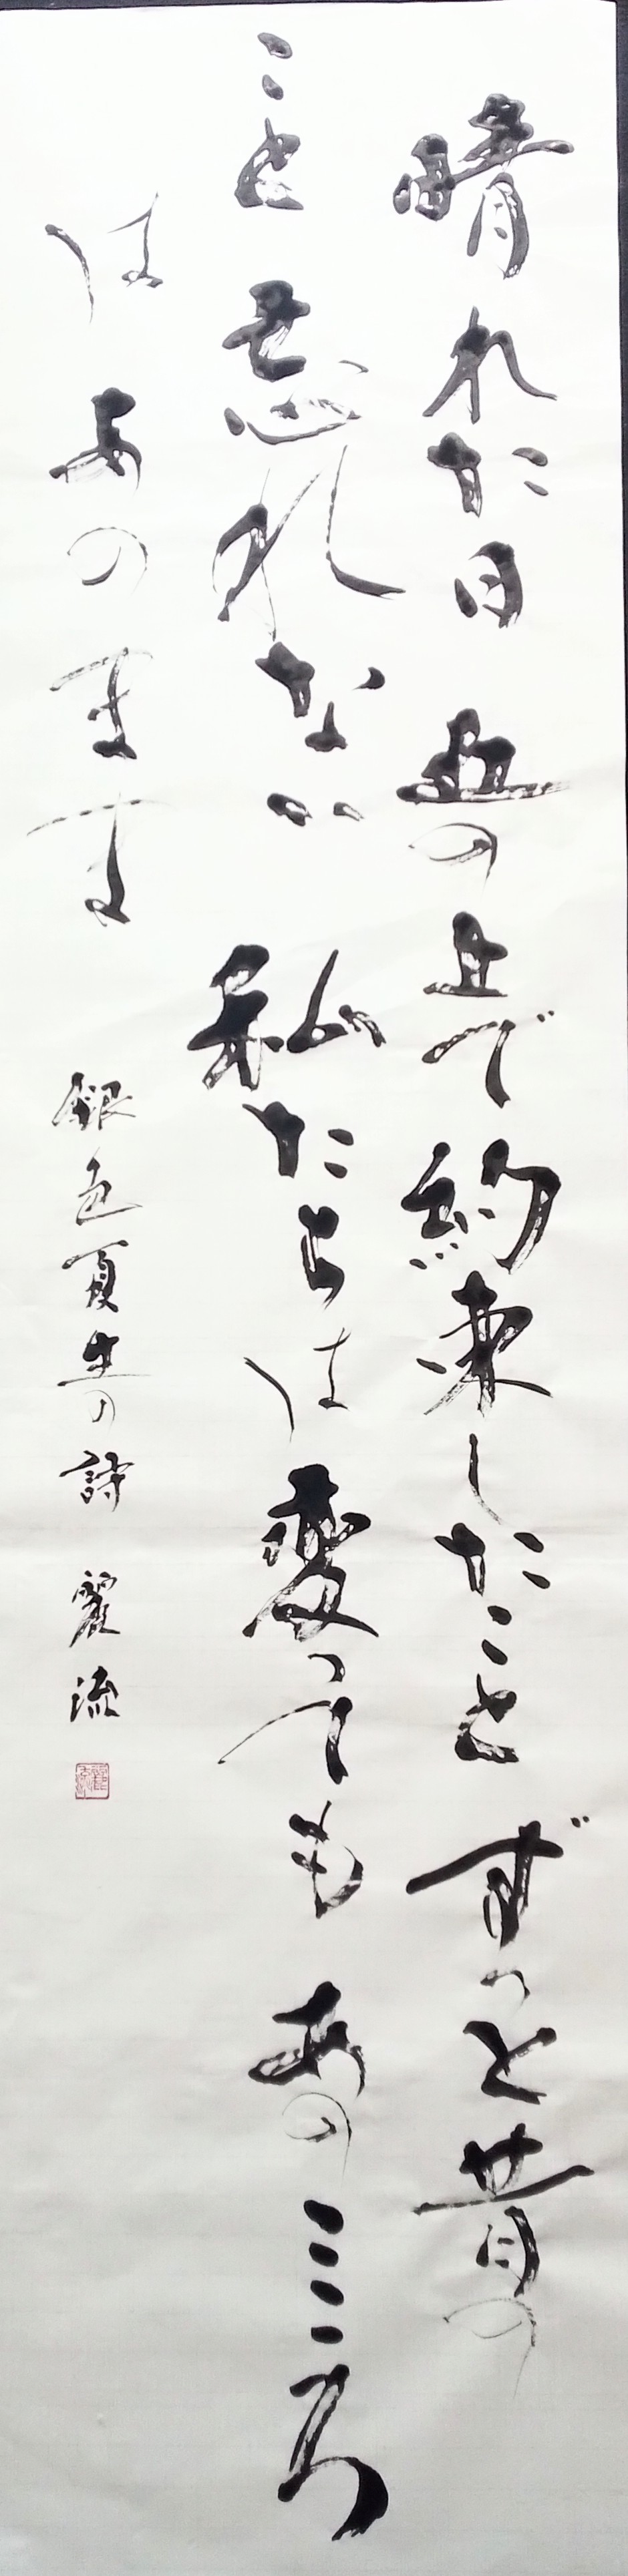 晴れた日 丘の上で約束したこと ずっと昔の
こと 忘れない 私たちは変っても あのこころ
はあのまま 銀色夏生の詩 麗流